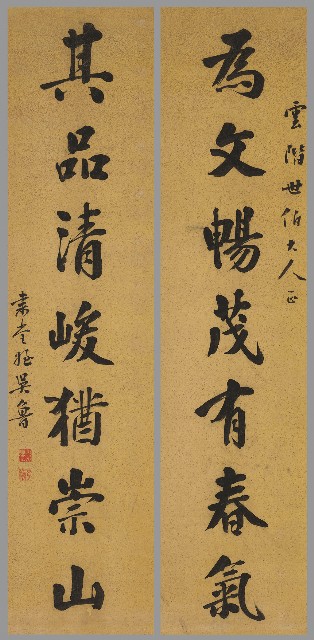 雲階世伯大人正
為文暢茂有春氣
其品清峻猶崇山
肅堂姪吳魯